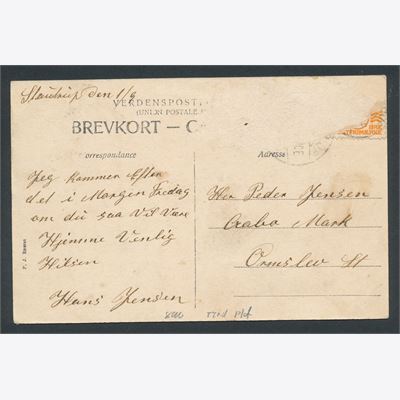 Stautrup den 1/9
VERDENSPOST
(UNION POSTALE
BREVKORT — C
Correspondance
Adresse
Jeg kommer Efter
det i Morgen Fredag
om du saa Vil Være
Hjemme Venlig
Hilsen
Hans Jensen
Her Peder Jensen
Mark
Ormslev St